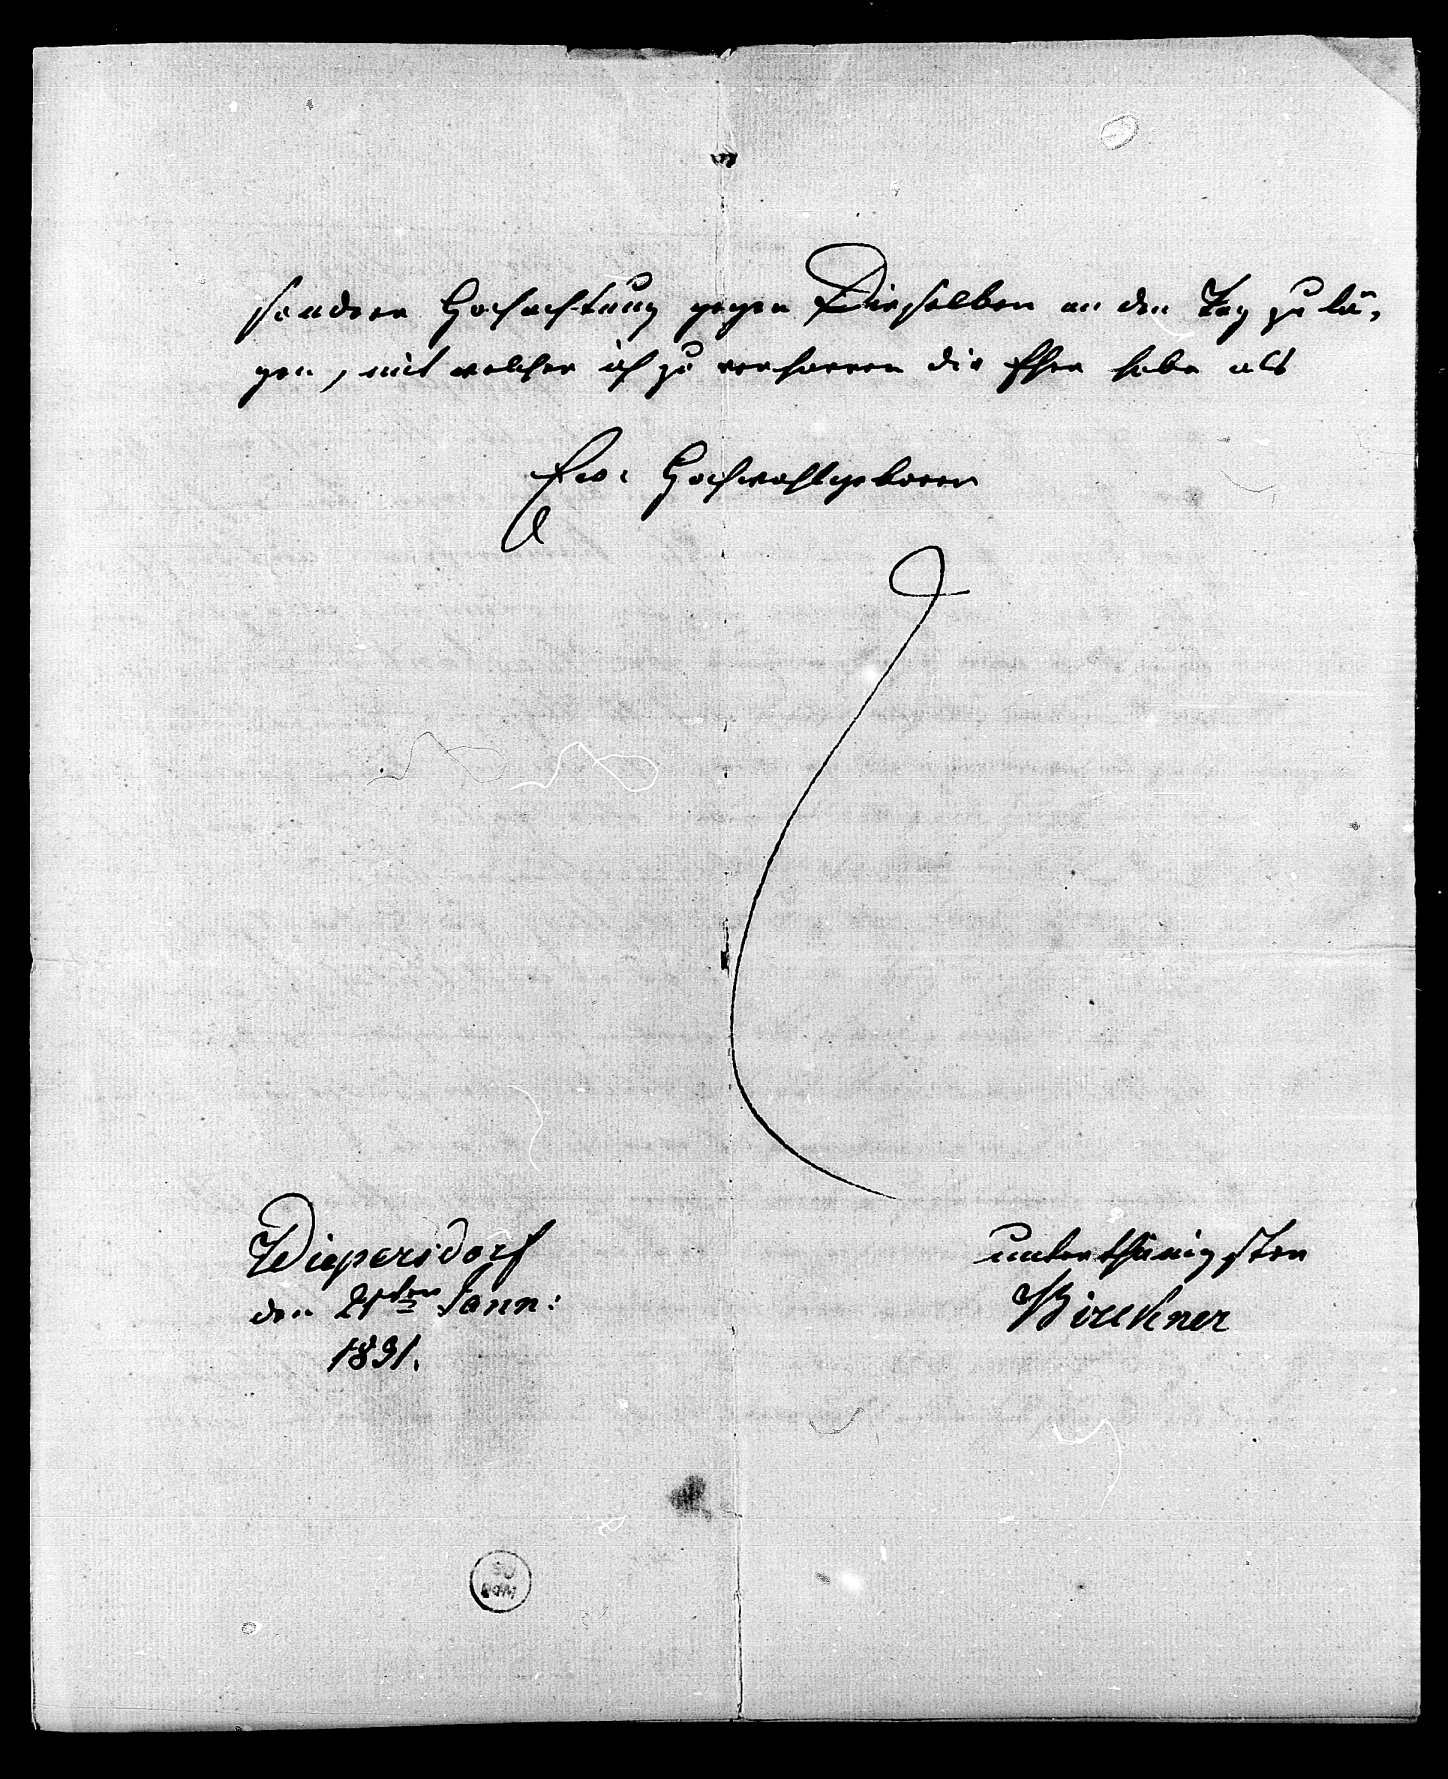 sondere Hochachtung gegen Dieselben an den Tag zu lä,
gen, mit welcher ich zu verharren die Ehre habe als
Ew: Hochwohlgeboren
Wiepersdorf
den 21ten Jann:
1831.
unterthänigster
Birckner